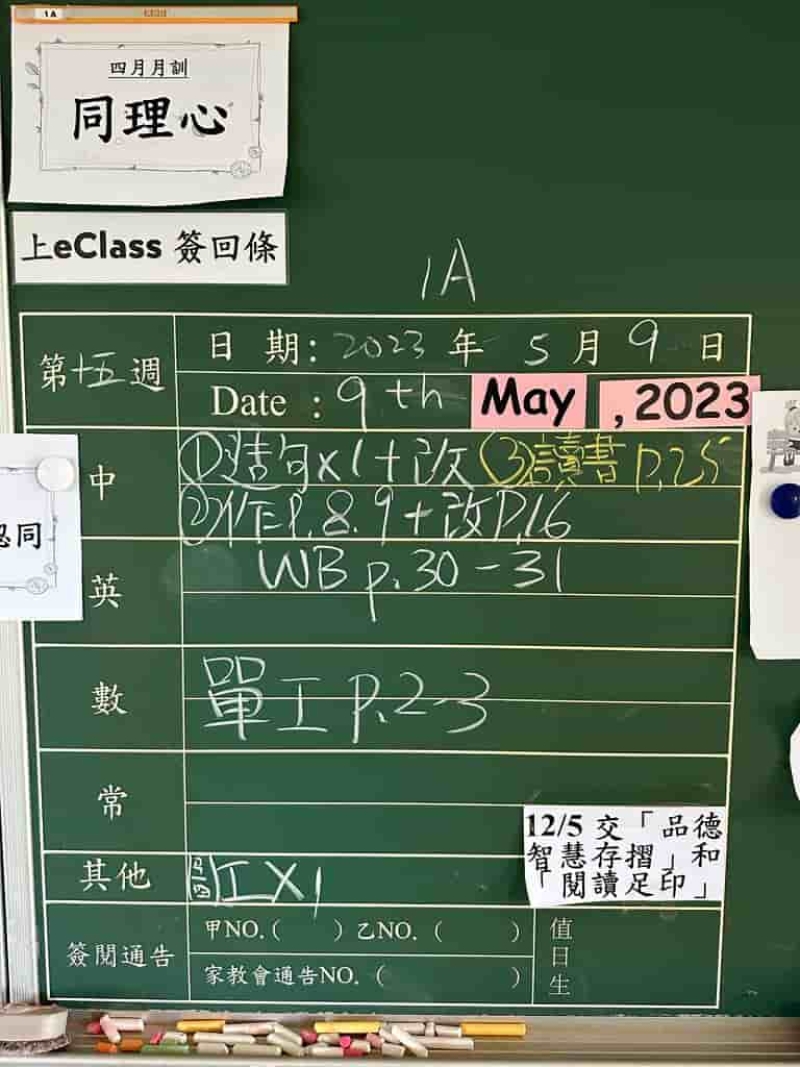 1A
四月月訓
同理心
上eClass 簽回條
1A
第十五週
日 期: 2023 年 5 月 9 日
Date : 9th May , 2023
中
①造句x1+改 ③讀書 P.25
②作P.8.9+改P.16
英
WB p.30-31
數
單工 P.2-3
常
12/5 交「品德
智慧存摺」和
「閱讀足印」
其他
工X1
簽閱通告
甲NO.( ) 乙NO. ( )
家教會通告NO. ( )
值日生
同